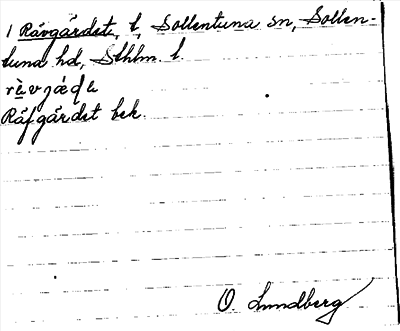 1 Rävgärdet, t, Sollentuna sn, Sollen-
tuna hd, Sthlm. l.
Räfgärdet bek.
O Lundberg